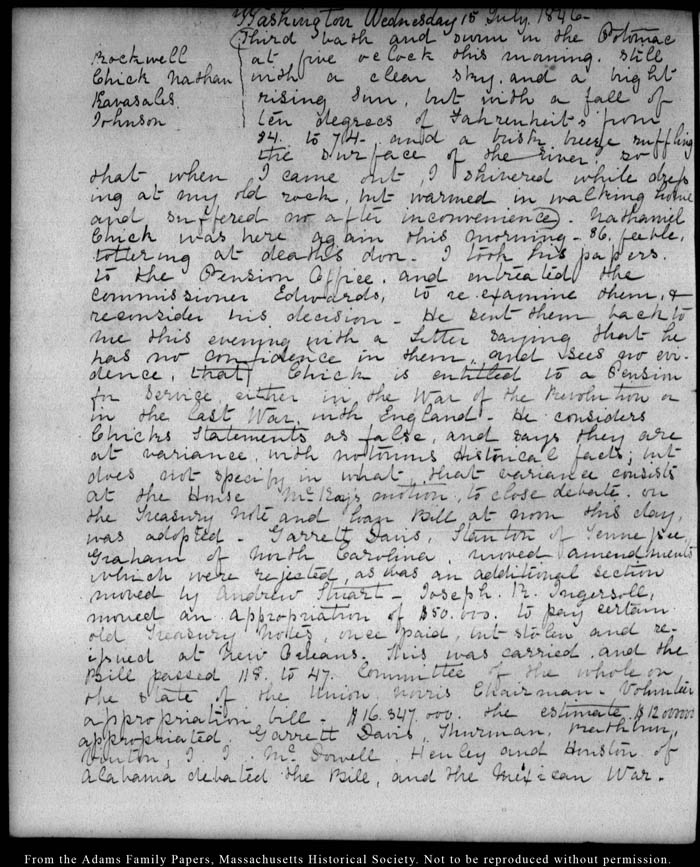 Washington Wednesday 15 July. 1846-
Third bath and swim in the Potomac
Rockwell
Chick Nathan
Kavasales
Johnson
at five oclock this morning. Still
with a clear sky, and a bright
rising Sun, but with a fall of
ten degrees of Fahrenheit's from
84. to 74- and a brisk breeze ruffling
the surface of the river, so
that when I came out, I shivered while dress-
ing at my old rock, but warmed in walking home
and suffered no after inconvenience). Nathaniel
Chick was here again this morning - 86. feeble,
tottering at deaths door. I took his papers.
to the Pension Office. and entreated the
Commissioner Edwards, to re examine them, &
reconsider his decision - He sent them back to
me this evening with a Letter saying that he
has no confidence in them, and sees no evi-
dence, that Chick is entitled to a Pension
for Service, either in the War of the Revolution or
in the last War, with England - He considers
Chicks Statements as false, and says they are
at variance, with notorious Historical facts; but
does not specify in what, that variance consists
at the House McKay's motion, to close debate. on
the Treasury Note and Loan Bill, at noon this day,
was adopted - Garrett Davis, Stanton of Tennessee,
Graham of North Carolina, moved amendments
which were rejected, as was an additional section
moved by Andrew Stuart - Joseph. R. Ingersoll,
moved an appropriation of $50.000. to pay certain
old Treasury Notes, once paid, but stolen and re-
issued at New Orleans. This was carried, and the
Bill passed 118. to 47. Committee of the whole on
the state of the Union, Norris Chairman - Volunteer
appropriation bill - $16.347.000. the estimate $12000000
appropriated. Garrett Davis, Thurman, Rathbun,
Vinton, J J McDowell, Henley and Houston of
Alabama debated the Bill, and the Mexican War -
From the Adams Family Papers, Massachusetts Historical Society. Not to be reproduced without permission.